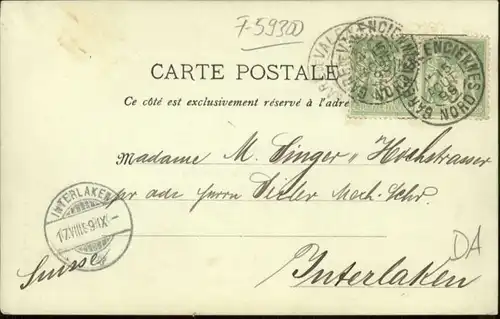 F-59300
CARTE POSTALE
Ce côté est exclusivement réservé à l'adre
VALENCIENNES
GARE NORD
Madame M. Singer-Hochstrasser
per adr. Herrn Mech. Schr.
INTERLAKEN
17.VIII.9
Suisse
Interlaken
DA